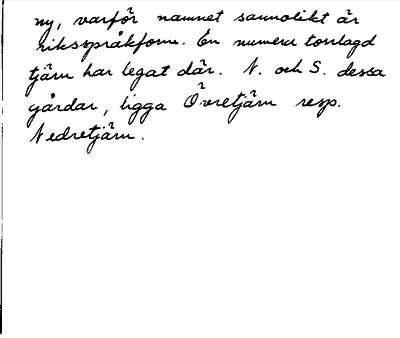 ny, varför namnet sannolikt är
riksspråkform. En numera torrlagd
tjärn har legat där. N. och S. dessa
gårdar, ligga Övretjärn resp.
Nedretjärn.